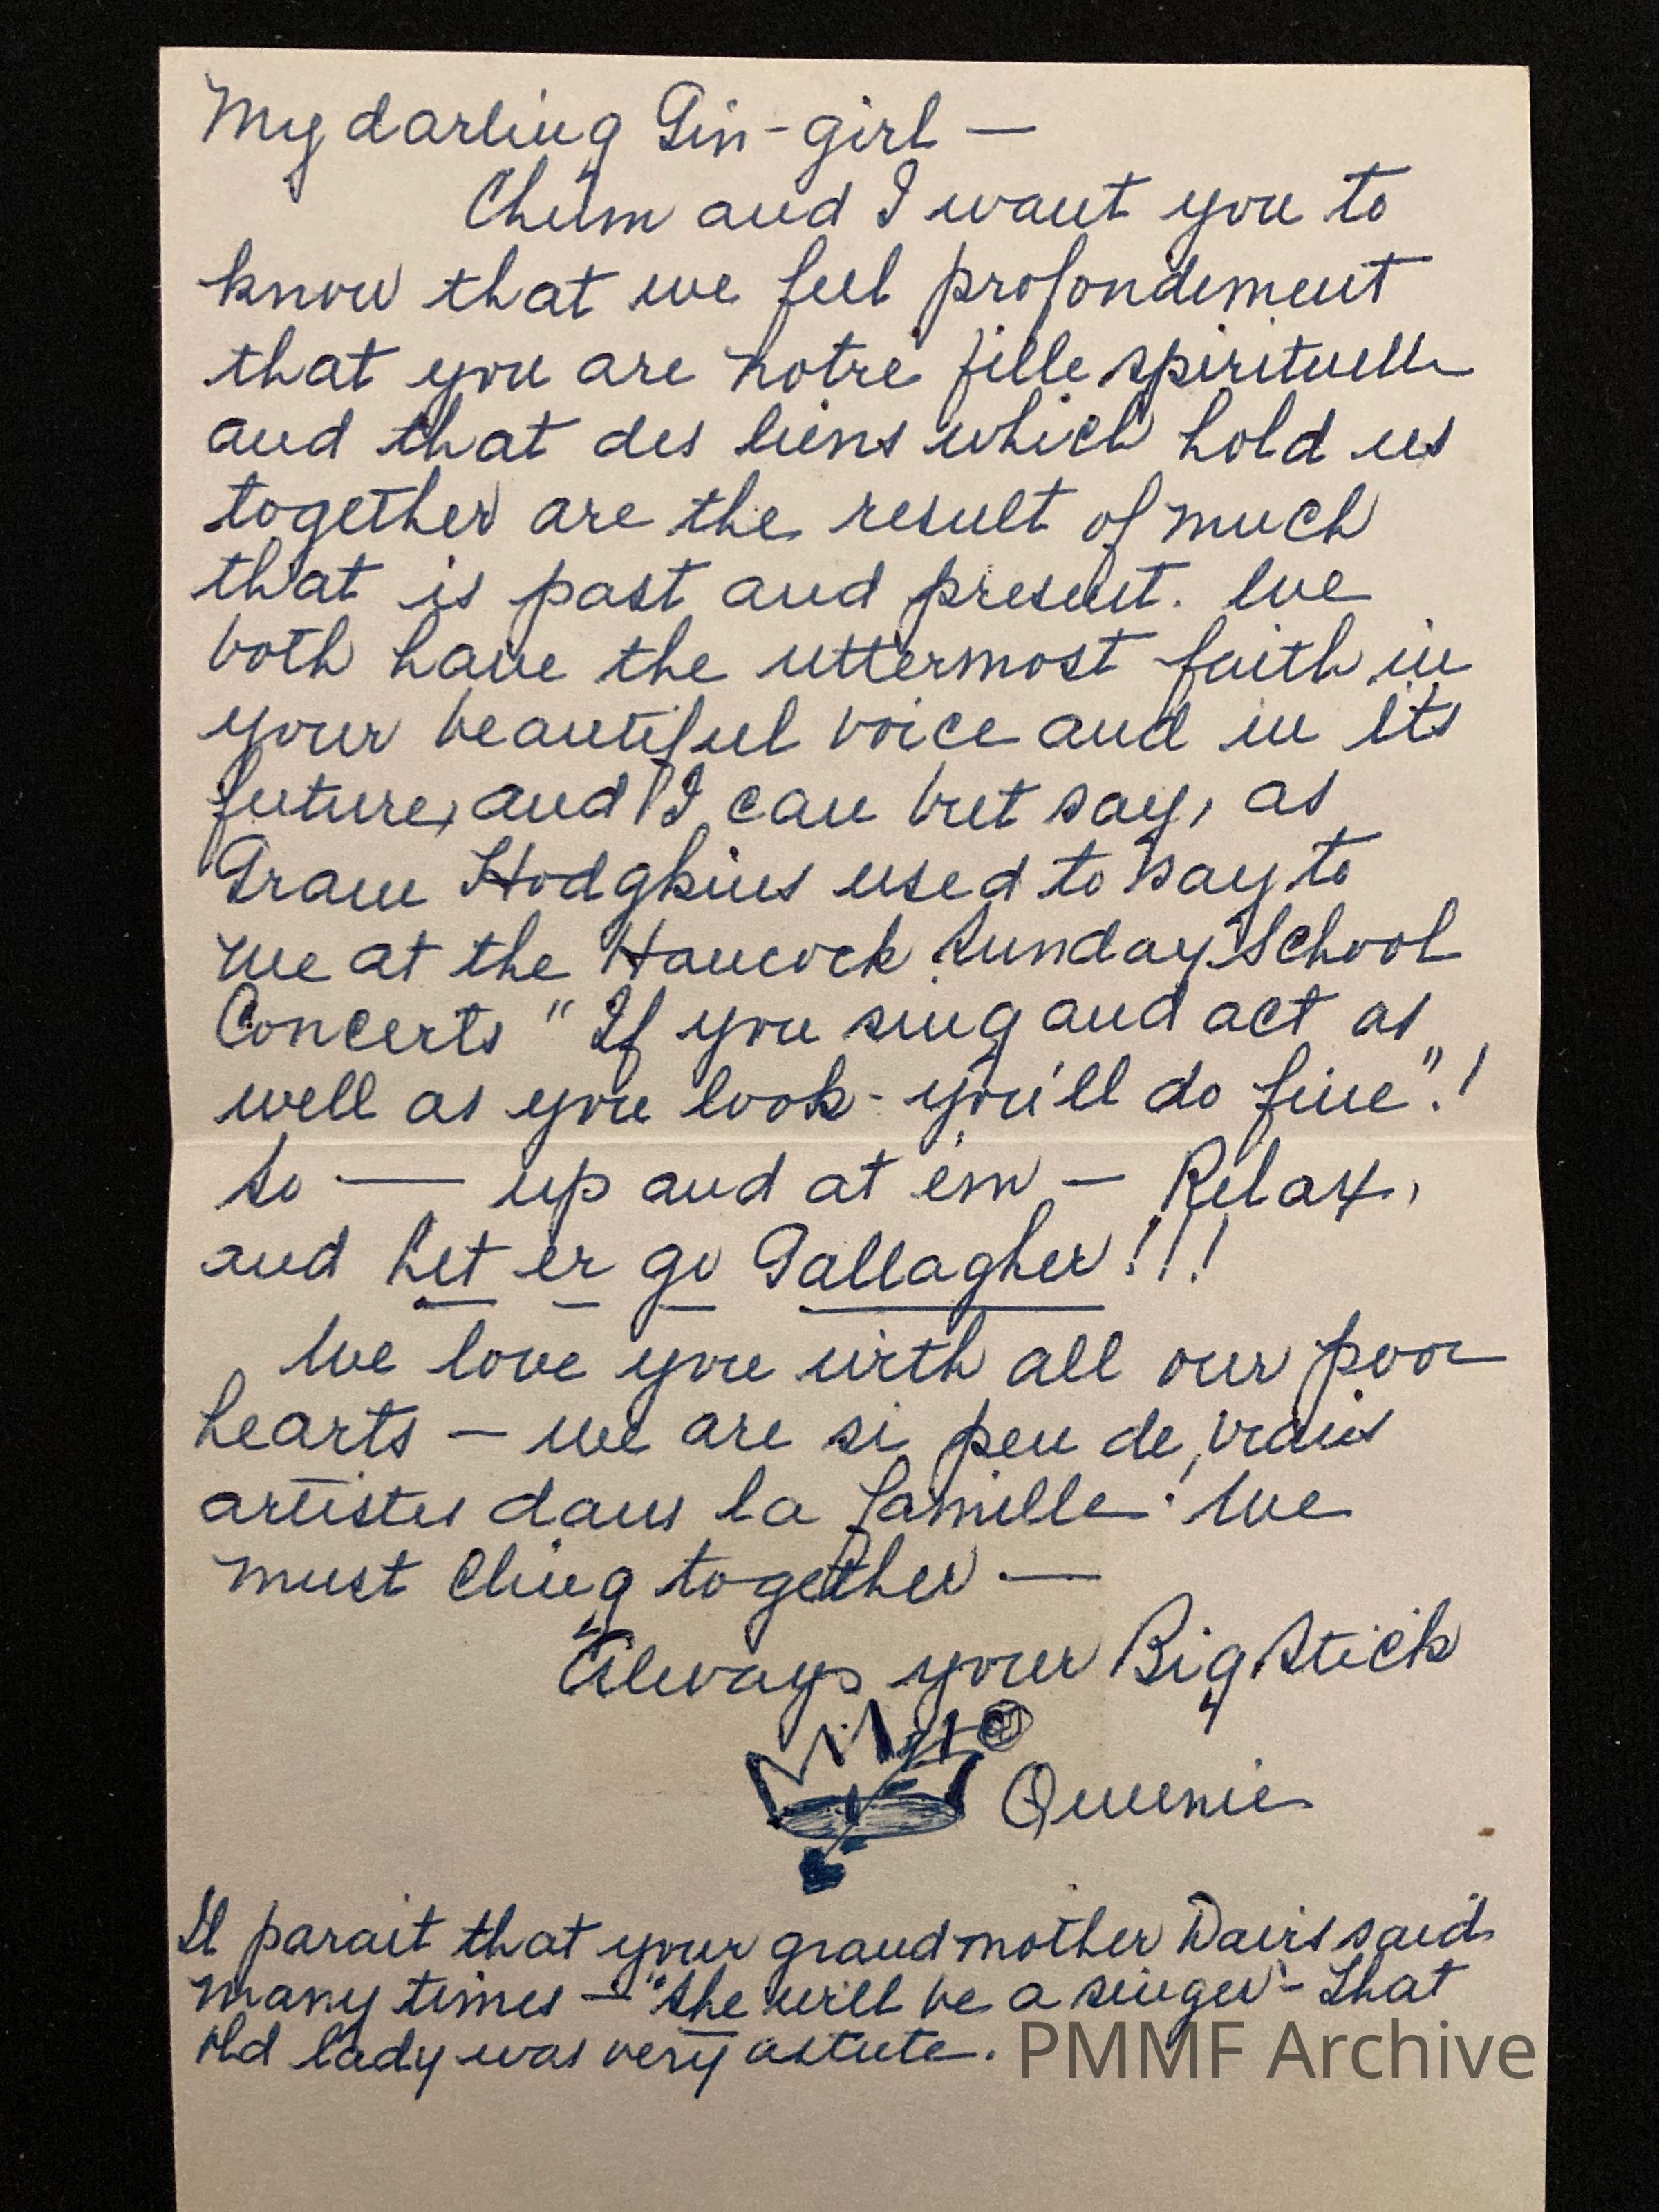 My darling Gin-girl —
Chum and I want you to
know that we feel profondement
that you are notre fille spirituelle
and that des liens which hold us
together are the result of much
that is past and present. We
both have the uttermost faith in
your beautiful voice and in its
future, and I can but say, as
Gram Hodgkins used to say to
me at the Hancock Sunday School
Concerts "If you sing and act as
well as you look - you'll do fine".!
So — up and at em — Relax,
and Let er go Gallagher!!!
We love you with all our poor
hearts — we are si peu de vrais
artistes dans la famille. We
must cling together —
Always your Big Stick
Queenie
Il parait that your grandmother Davis said
many times — "She will be a singer" - That
old lady was very astute.
PMMF Archive